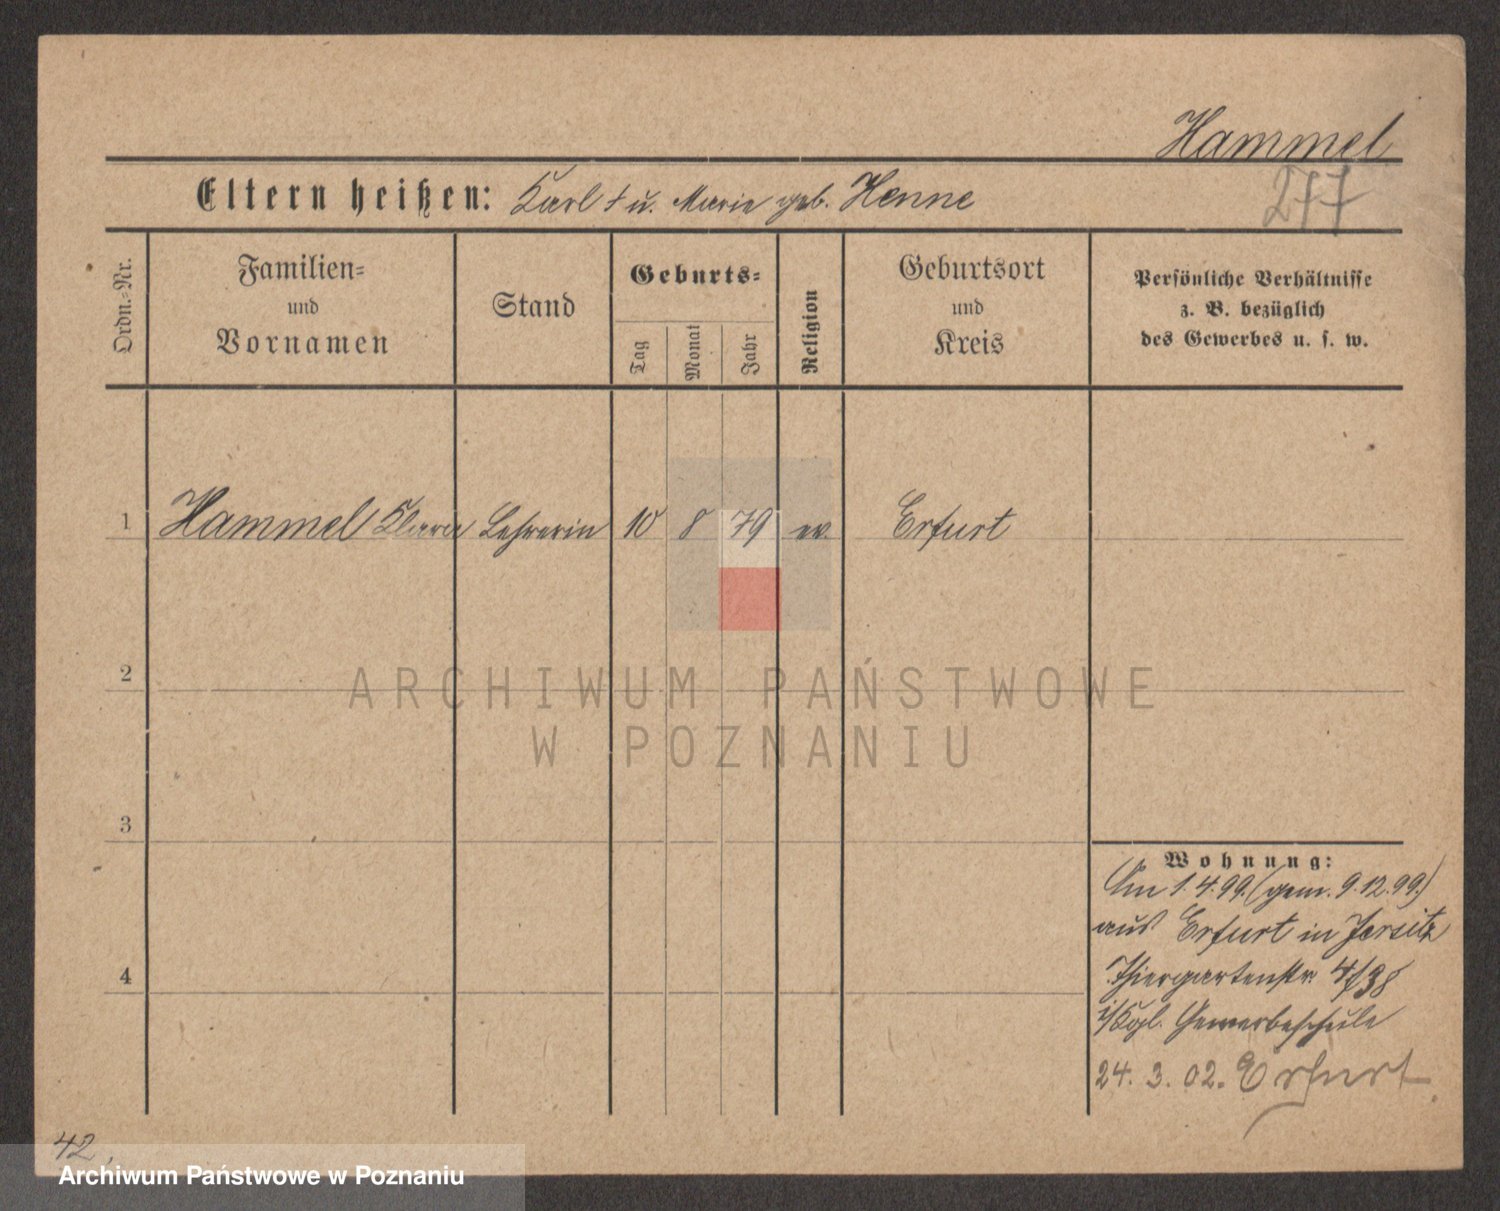 Hammel
277
Eltern heißen: Karl † u. Marie geb. Henne
Ordn.=Nr.
Familien=
und
Vornamen
Stand
Geburts=
Tag
Monat
Jahr
Religion
Geburtsort
und
Kreis
Persönliche Verhältnisse
z. B. bezüglich
des Gewerbes u. s. w.
1 Hammel Klara Lehrerin 10 8 79 ev. Erfurt
2
ARCHIWUM PAŃSTWOWE
W POZNANIU
3
4
Wohnung:
Am 1.4.99. (gem. 9.12.99.)
aus Erfurt in Jersitz
Thiergartenstr. 4/38
i/Kgl. Gewerbeschule
24. 3. 02. Erfurt
42,
Archiwum Państwowe w Poznaniu